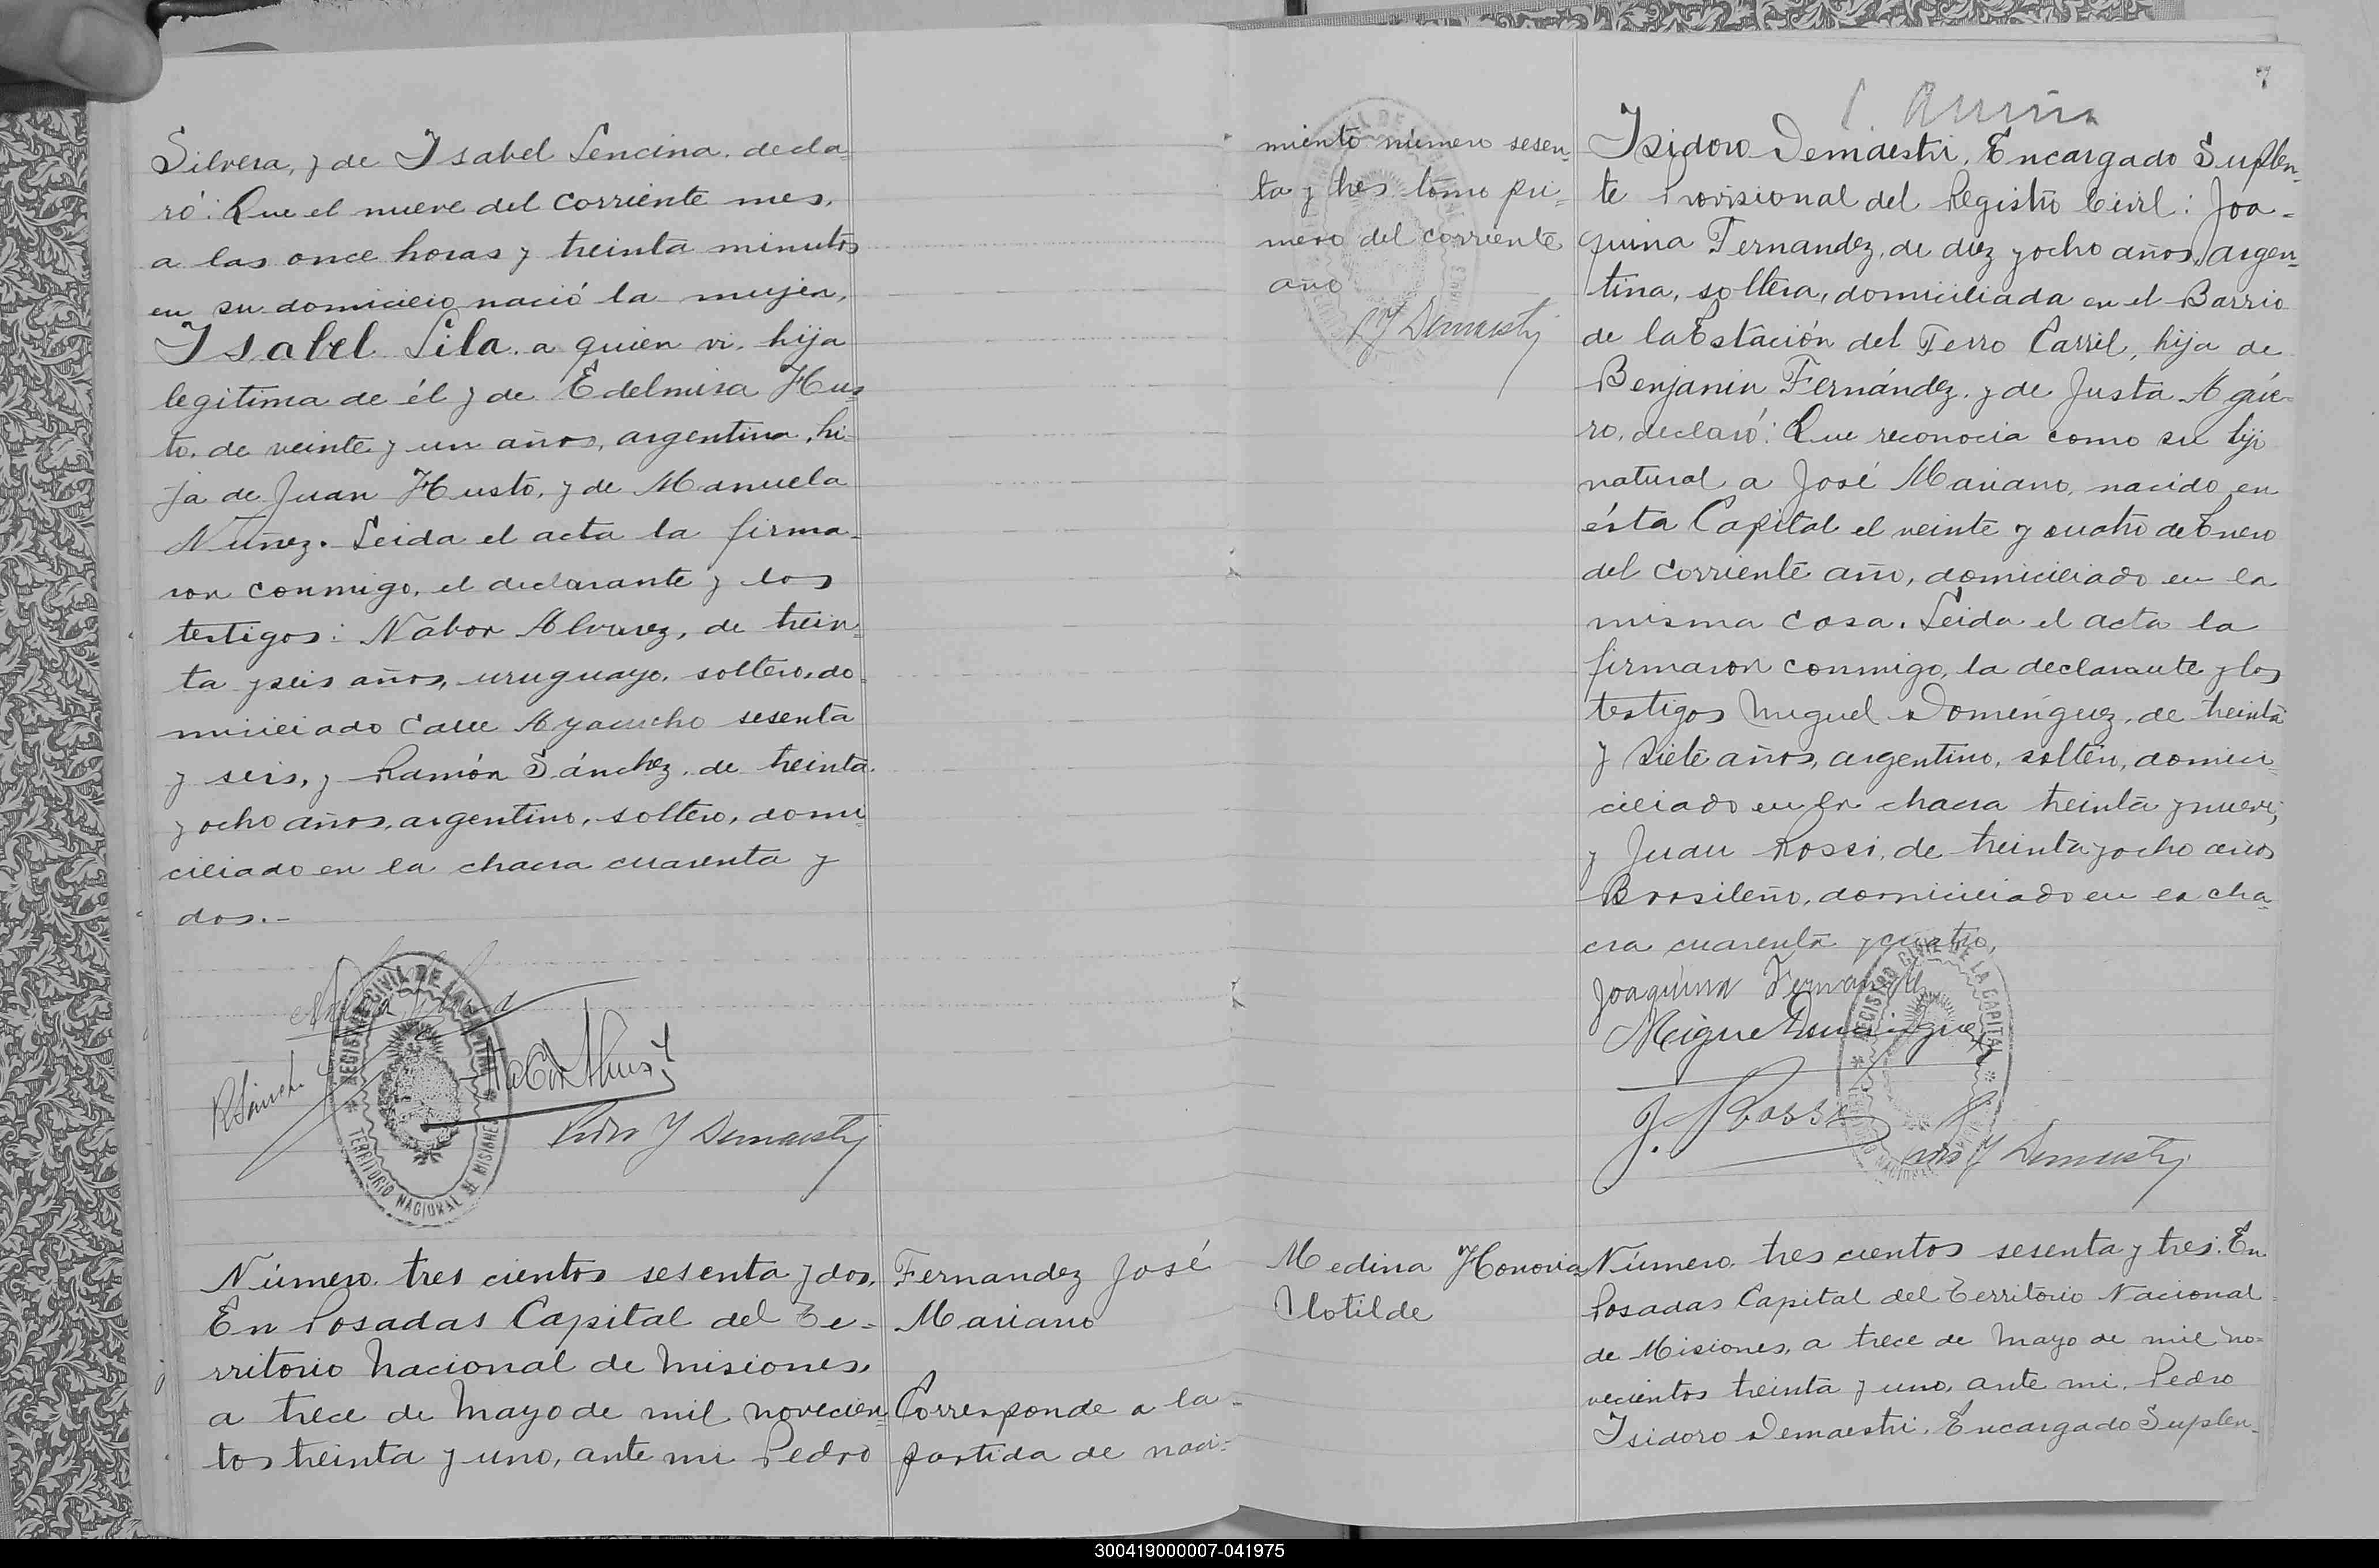 Silvera, y de Isabel Lencina, decla-
ró: Que el nueve del corriente mes,
a las once horas y treinta minutos
en su domicilio nació la mujer,
Isabel Lila, a quien vi, hija
legitima de él y de Edelmira Hus-
to, de veinte y un años, argentina, hi-
ja de Juan Husto, y de Manuela
Nuñez. Leida el acta la firma-
ron conmigo, el declarante y los
testigos: Nabor Alvarez, de trein-
ta y seis años, uruguayo, soltero, do-
miciliado calle Ayacucho sesenta
y seis, y Ramón Sánchez, de treinta
y ocho años, argentino, soltero, domi-
ciliado en la chacra cuarenta y
dos.-
REGISTRO CIVIL DE LA CAPITAL
TERRITORIO NACIONAL DE MISIONES
Pedro Y Demaestri
Número tres cientos sesenta y dos.
En Posadas Capital del Te-
rritorio Nacional de Misiones,
a trece de Mayo de mil novecien-
tos treinta y uno, ante mi Pedro
Fernandez José
Mariano
Corresponde a la
partida de naci-
miento número sesen-
ta y tres tomo pri-
mero del corriente
año
P Y Demaestri
7
Isidoro Demaestri, Encargado Suplen-
te Provisional del Registro Civil: Joa-
quina Fernandez, de diez y ocho años, argen-
tina, soltera, domiciliada en el Barrio
de la Estación del Ferro Carril, hija de
Benjamin Fernández, y de Justa Agüe-
ro, declaró: Que reconocia como su hijo
natural a José Mariano, nacido en
ésta Capital el veinte y cuatro de Enero
del corriente año, domiciliado en la
misma casa. Leida el acta la
firmaron conmigo, la declarante y los
testigos Miguel Domínguez, de treinta
y siete años, argentino, soltero, domici-
ciliado en la chacra treinta y nueve,
y Juan Rossi, de treinta y ocho años
Brasileño, domiciliado en la cha-
cra cuarenta y cuatro,
Joaquina Fernandez
Miguel Dominguez
REGISTRO CIVIL DE LA CAPITAL
J. Rossi
Pedro Y Demaestri
Medina Honoria
Clotilde
Número tres cientos sesenta y tres. En
Posadas Capital del Territorio Nacional
de Misiones, a trece de Mayo de mil no-
vecientos treinta y uno, ante mi, Pedro
Isidoro Demaestri, Encargado Suplen-
300419000007-041975